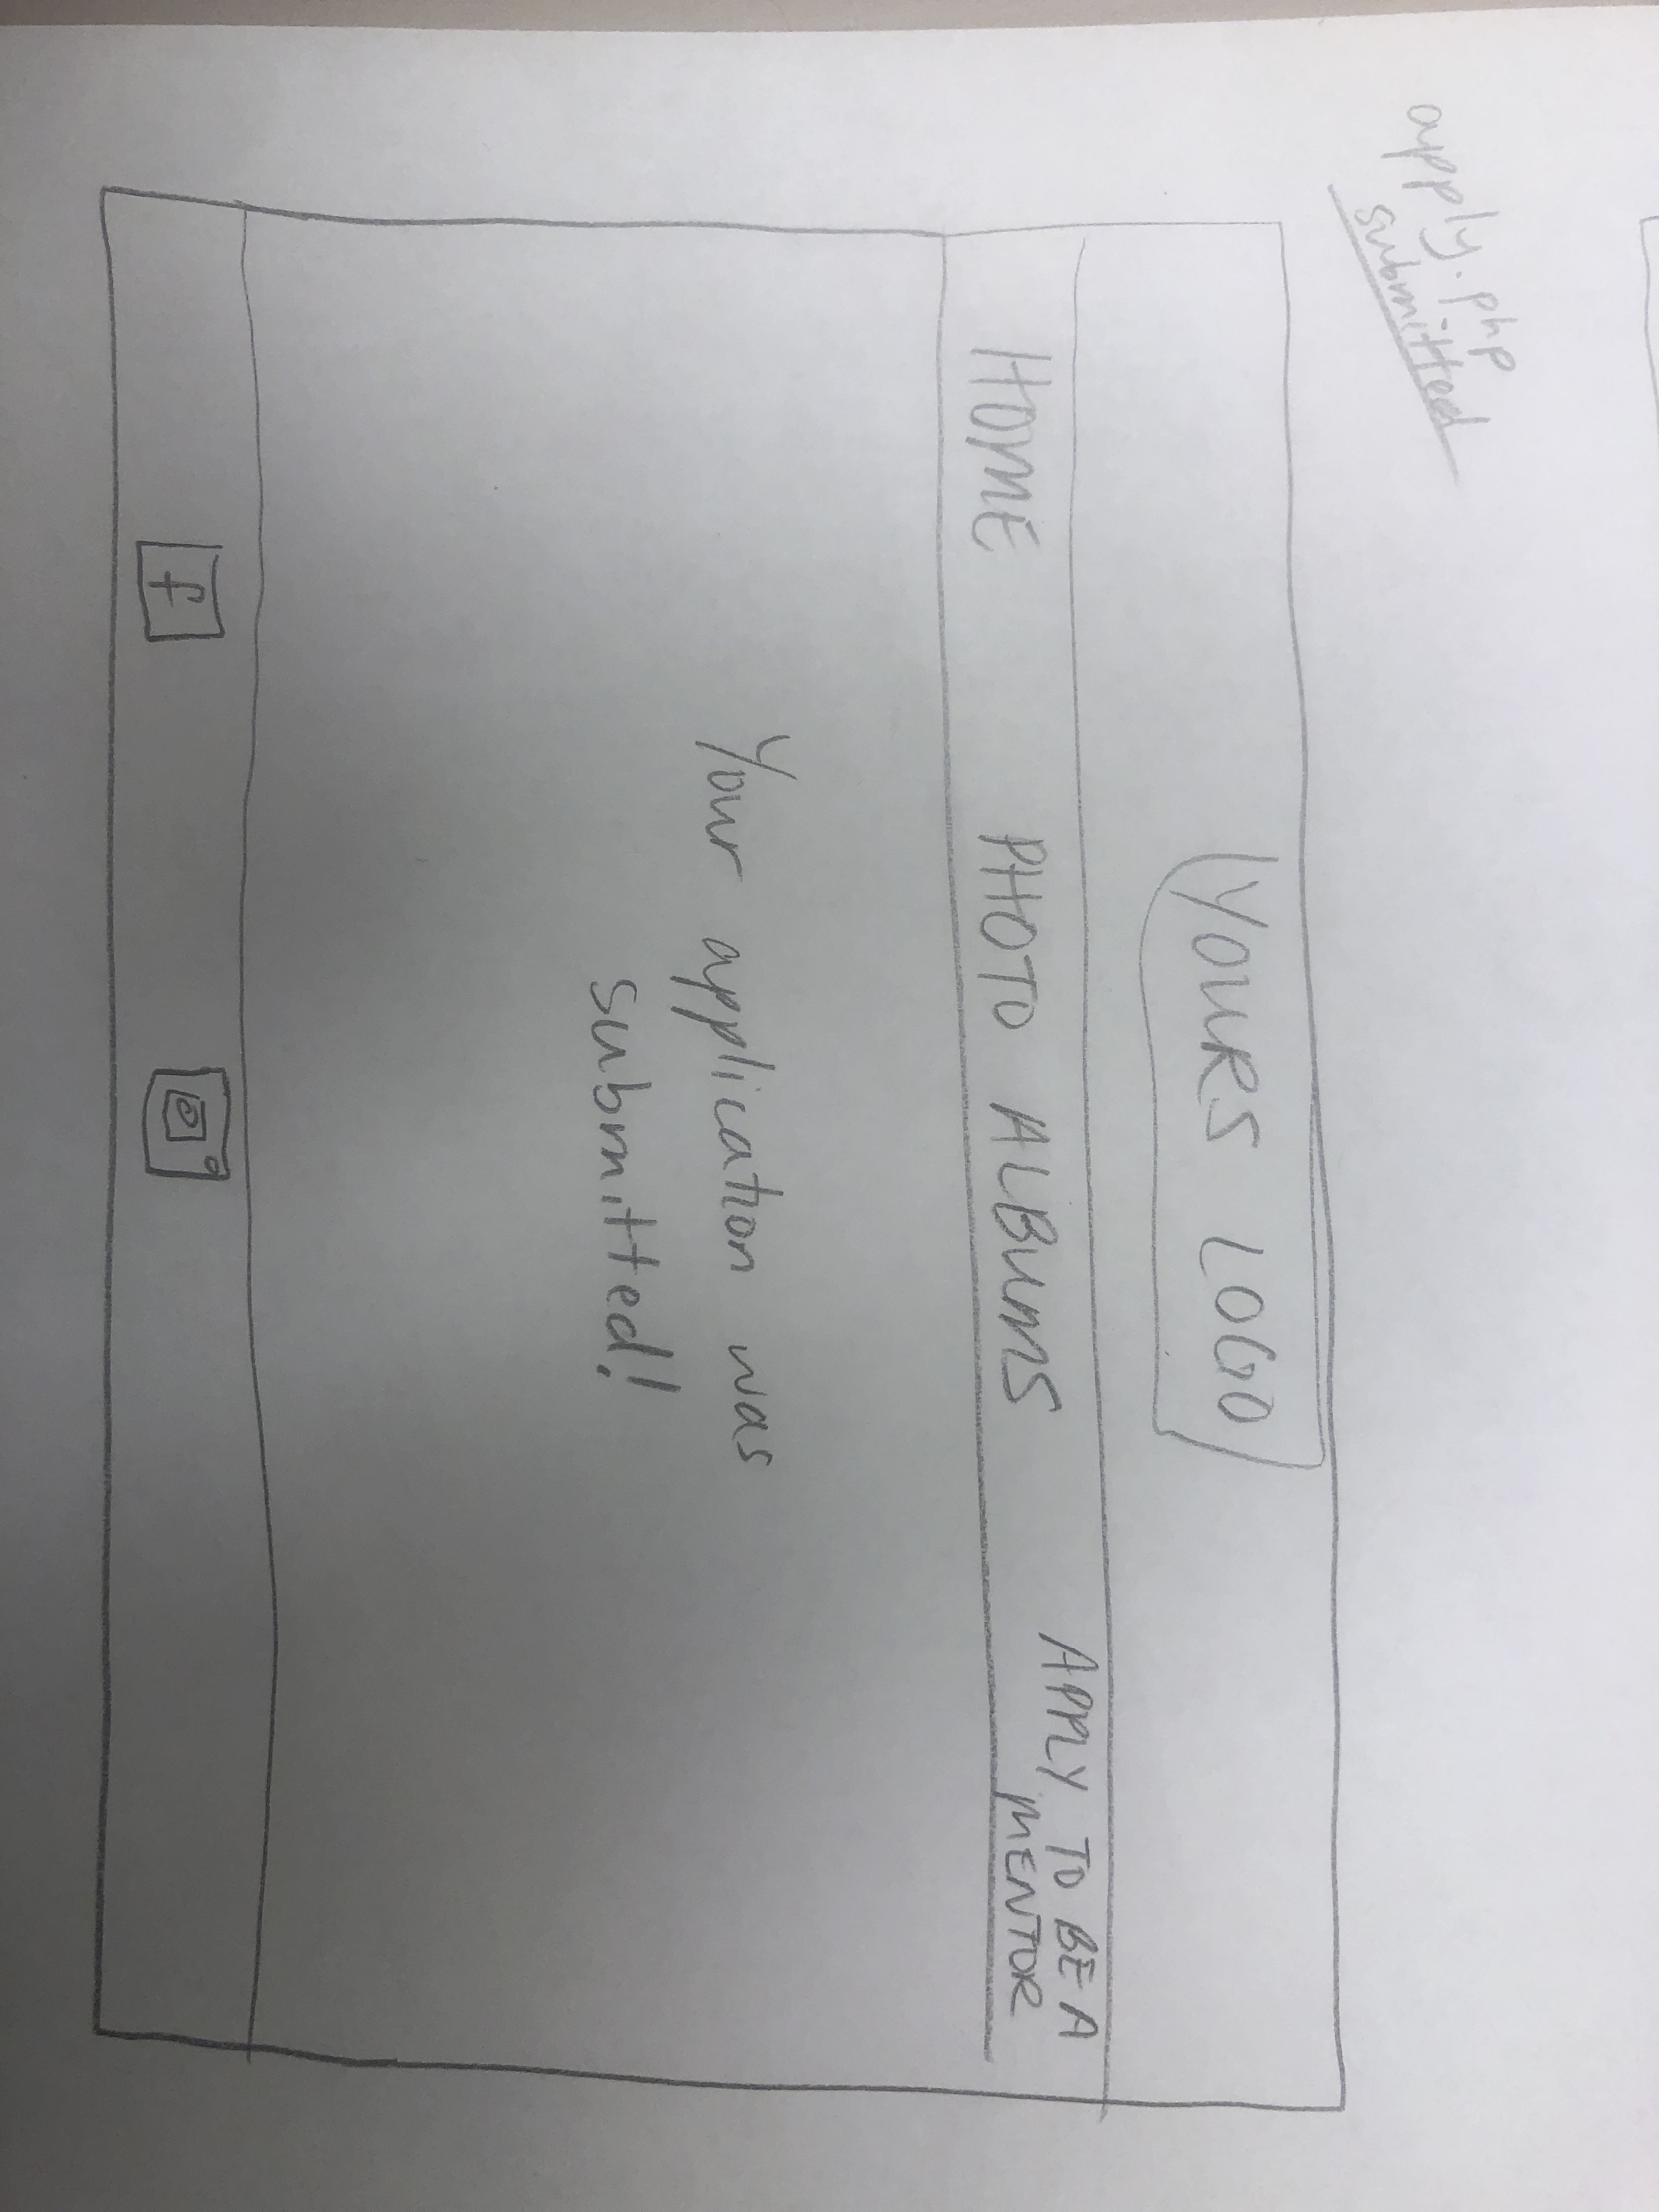 apply.php
submitted
YOURS LOGO
HOME PHOTO ALBUMS APPLY TO BE A
MENTOR
Your application was
submitted!
f